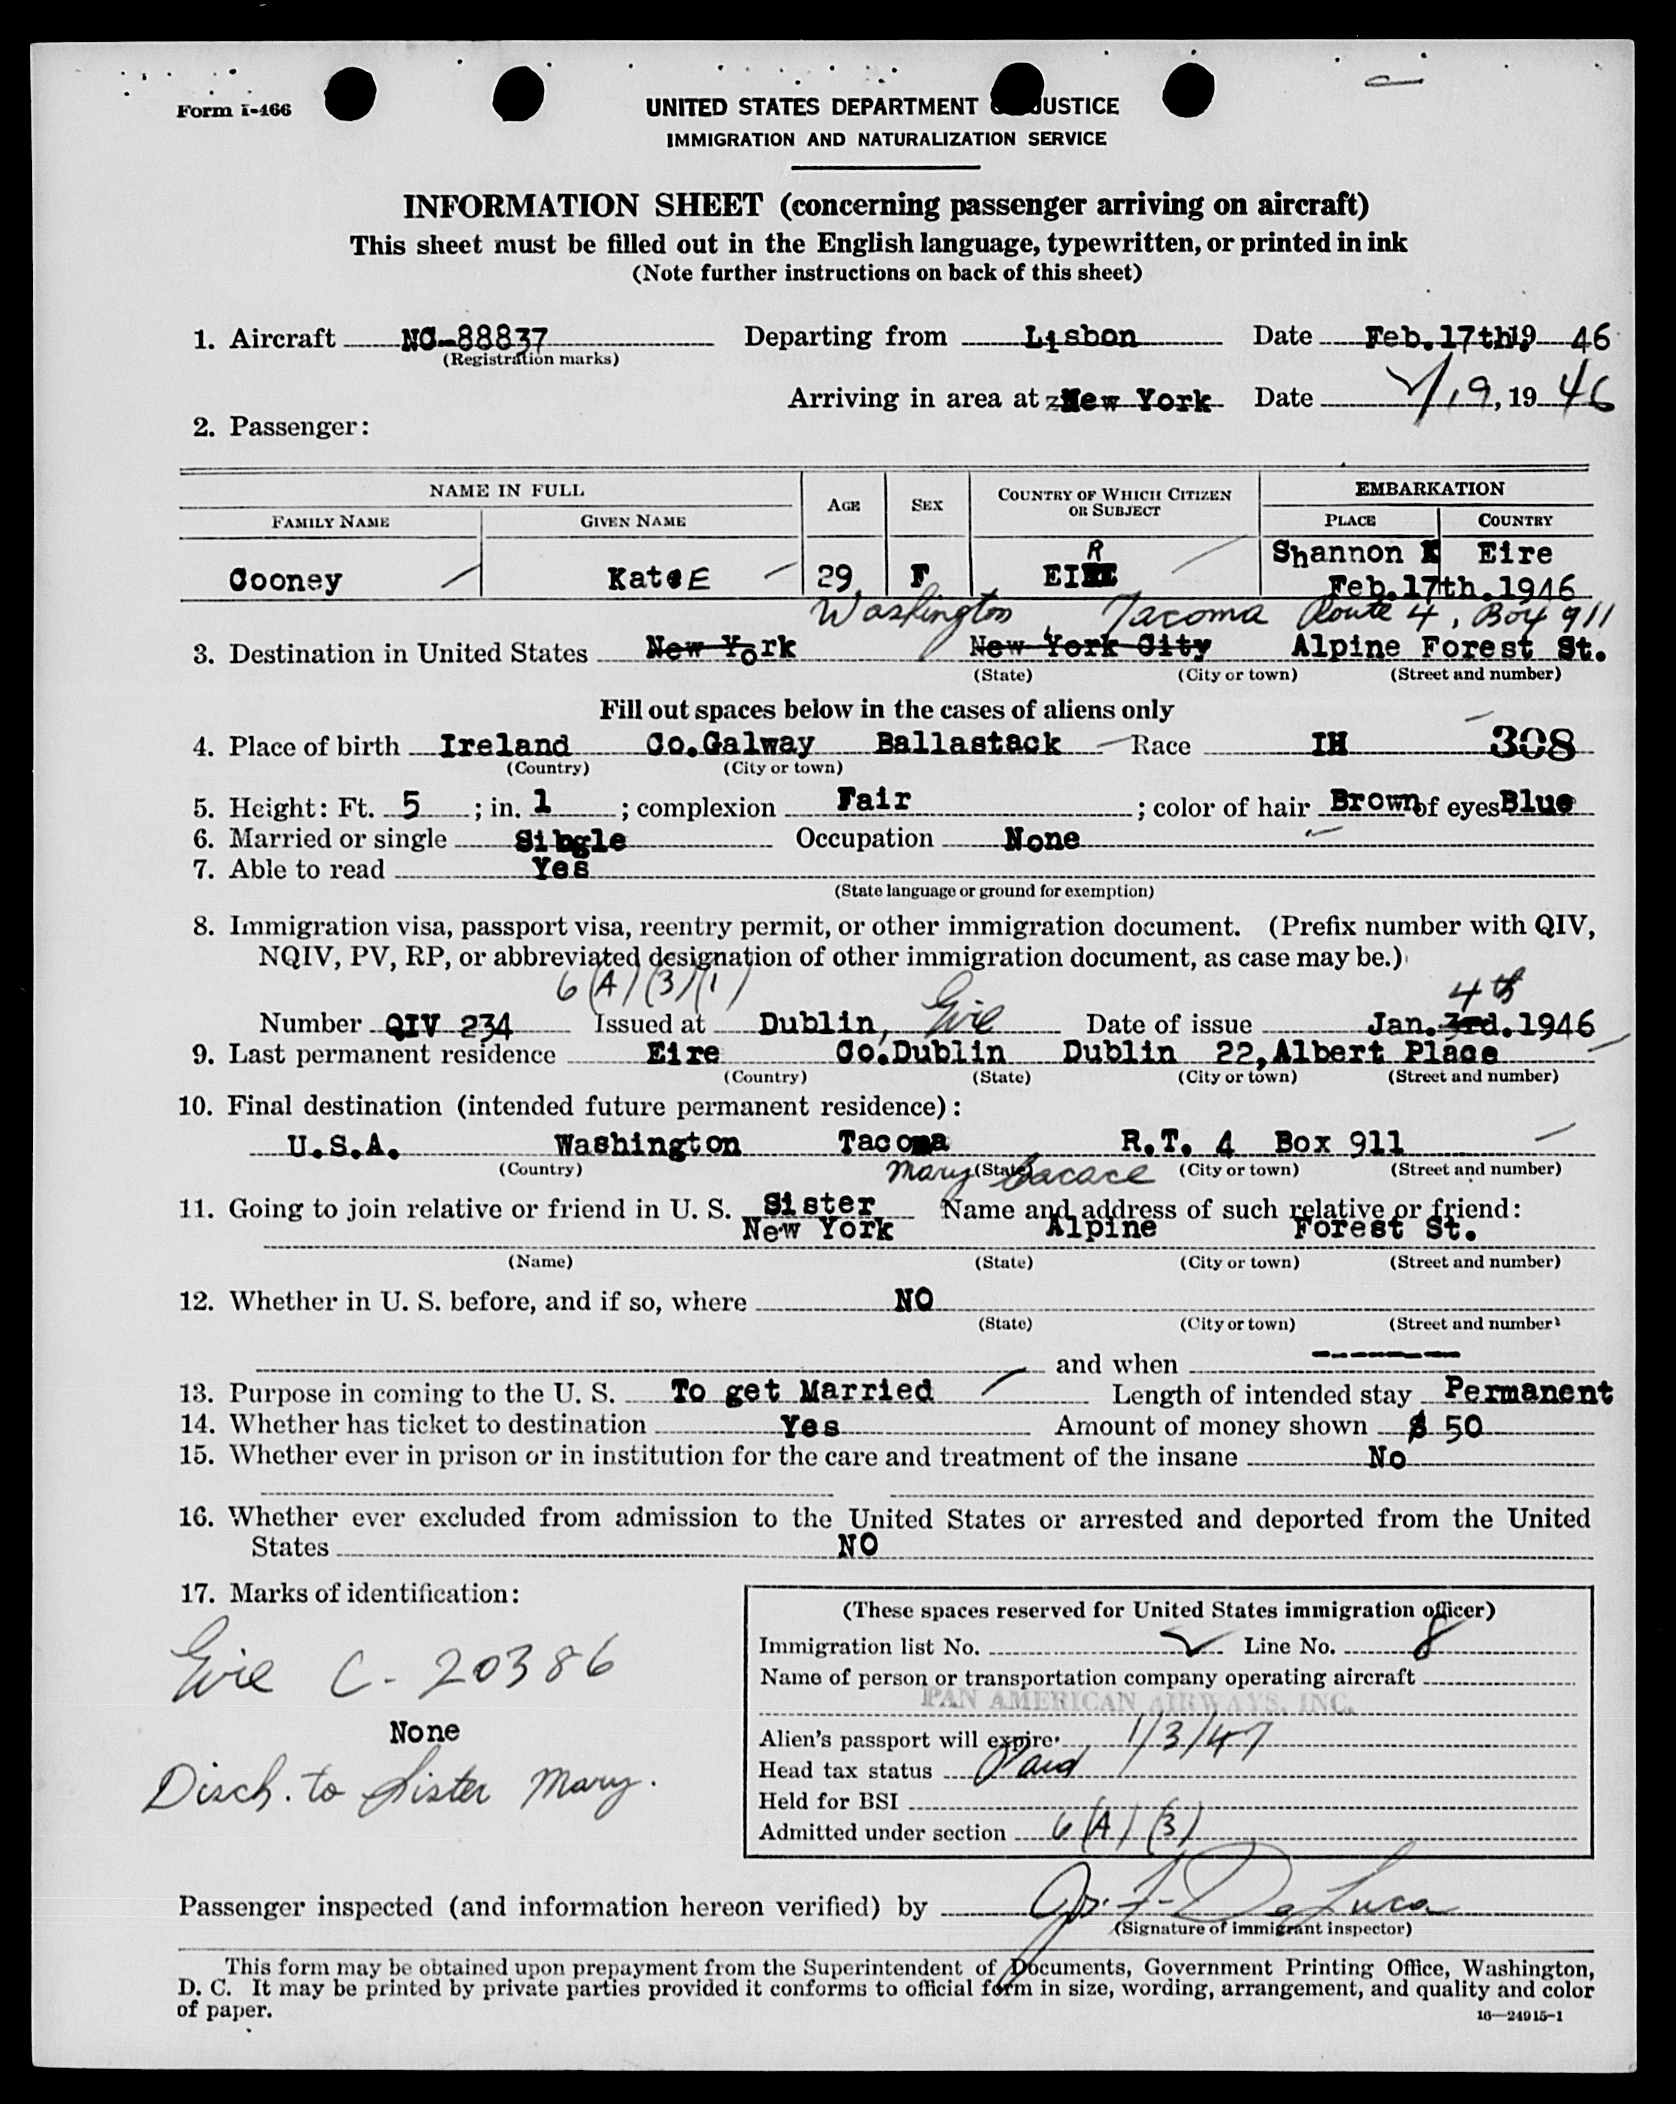 Form I-466
UNITED STATES DEPARTMENT OF JUSTICE
IMMIGRATION AND NATURALIZATION SERVICE
INFORMATION SHEET (concerning passenger arriving on aircraft)
This sheet must be filled out in the English language, typewritten, or printed in ink
(Note further instructions on back of this sheet)
1. Aircraft NC-88837 Departing from Lisbon Date Feb.17th, 19 46
(Registration marks)
Arriving in area at New York Date 2/19, 19 46
2. Passenger:
NAME IN FULL AGE SEX COUNTRY OF WHICH CITIZEN OR SUBJECT EMBARKATION
FAMILY NAME GIVEN NAME PLACE COUNTRY
Cooney KatE 29 F EIRE Shannon Eire
Feb.17th.1946
Washington, Tacoma Route 4, Box 911
3. Destination in United States New York New York City Alpine Forest St.
(State) (City or town) (Street and number)
Fill out spaces below in the cases of aliens only
4. Place of birth Ireland Co.Galway Ballastack Race IH 308
(Country) (City or town)
5. Height: Ft. 5 ; in. 1 ; complexion Fair ; color of hair Brown of eyes Blue
6. Married or single Sibgle Occupation None
7. Able to read Yes
(State language or ground for exemption)
8. Immigration visa, passport visa, reentry permit, or other immigration document. (Prefix number with QIV,
NQIV, PV, RP, or abbreviated designation of other immigration document, as case may be.)
6(A)(3)(1) 4th
Number QIV 234 Issued at Dublin, Eire Date of issue Jan.3rd.1946
9. Last permanent residence Eire Co.Dublin Dublin 22,Albert Place
(Country) (State) (City or town) (Street and number)
10. Final destination (intended future permanent residence):
U.S.A. Washington Tacoma R.T. 4 Box 911
(Country) (State) (City or town) (Street and number)
Mary Cacace
11. Going to join relative or friend in U. S. Sister Name and address of such relative or friend:
New York Alpine Forest St.
(Name) (State) (City or town) (Street and number)
12. Whether in U. S. before, and if so, where NO
(State) (City or town) (Street and number)
and when -------
13. Purpose in coming to the U. S. To get Married Length of intended stay Permanent
14. Whether has ticket to destination Yes Amount of money shown $ 50
15. Whether ever in prison or in institution for the care and treatment of the insane No
16. Whether ever excluded from admission to the United States or arrested and deported from the United
States NO
17. Marks of identification:
Eire C-20386
None
Disch. to Sister Mary.
(These spaces reserved for United States immigration officer)
Immigration list No. 2 Line No. 8
Name of person or transportation company operating aircraft
PAN AMERICAN AIRWAYS, INC.
Alien's passport will expire 1/3/47
Head tax status Paid
Held for BSI
Admitted under section 6(A)(3)
Passenger inspected (and information hereon verified) by Jos. F. DeLuca
(Signature of immigrant inspector)
This form may be obtained upon prepayment from the Superintendent of Documents, Government Printing Office, Washington,
D. C. It may be printed by private parties provided it conforms to official form in size, wording, arrangement, and quality and color
of paper.
16—24915-1